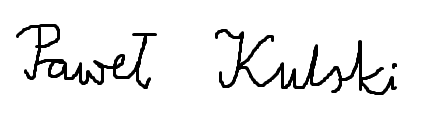 Paweł Kulski